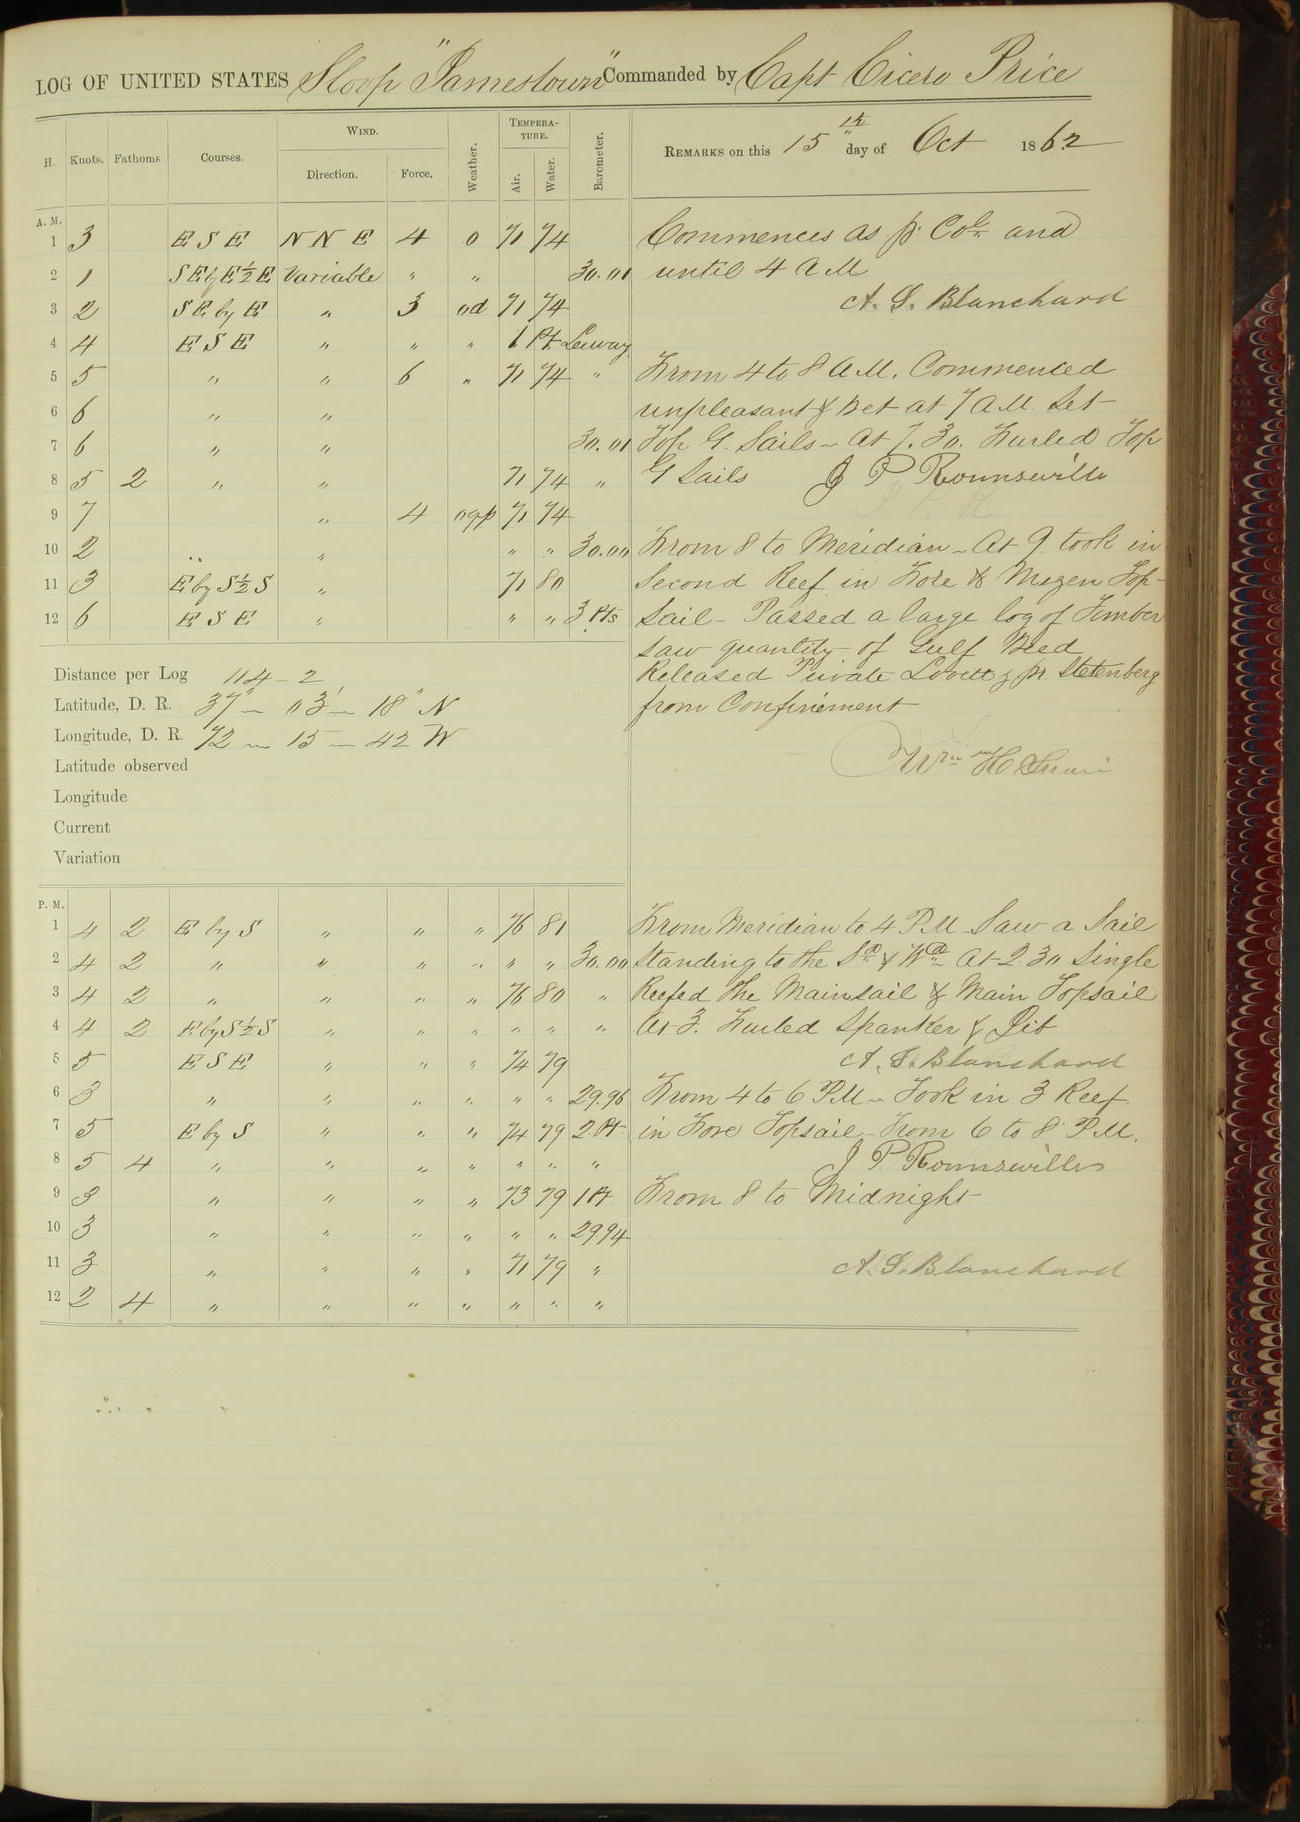 LOG OF UNITED STATES Sloop "Jamestown" Commanded by Capt Cicero Price
H. Knots. Fathoms Courses. WIND. Direction. Force. Weather. TEMPERATURE. Air. Water. Barometer. REMARKS on this 15th day of Oct 1862
A. M.
1 3 E S E N N E 4 o 71 74 Commences as pr Cols. and
2 1 S E by E ½ E Variable " " 30.01 until 4 A M
3 2 S E by E " 3 od 71 74 A. S. Blanchard
4 4 E S E " " " 1 Pt. Leeway
5 5 " " 6 " 71 74 " From 4 to 8 A.M. Commenced
6 6 " " unpleasant & wet at 7 A M Set
7 6 " " 30.01 Top G. Sails - At 7.30. Furled Top
8 5 2 " " 71 74 " G Sails J P Rounseville
9 7 " 4 oqp 71 74
10 2 " " " " 30.00 From 8 to Meridian - At 9 took in
11 3 E by S ½ S " 71 80 Second Reef in Fore & Mizen Top-
12 6 E S E " " " 3 Pts Sail - Passed a large log of Timber
saw quantity of Gulf Weed
Distance per Log 114 - 2 Released Private Lovett & pr. Stetenberg
Latitude, D. R. 37° - 03' - 18" N from Confinement
Longitude, D. R. 72 - 15 - 42 W
Latitude observed Wm H
Longitude
Current
Variation
P. M.
1 4 2 E by S " " " 76 81 From Meridian to 4 P.M Saw a Sail
2 4 2 " " " " " " 30.00 Standing to the Sd & Wd At 2.30 Single
3 4 2 " " " " 76 80 " Reefed the Mainsail & Main Topsail
4 4 2 E by S ½ S " " " " " " At 3. Furled Spanker & Jib
5 5 E S E " " " 74 79 A. S. Blanchard
6 3 " " " " " " 29.96 From 4 to 6 P.M - Took in 3 Reef
7 5 E by S " " " 74 79 2 Pt in Fore Topsail - From 6 to 8 P.M.
8 5 4 " " " " " " " J P Rounseville
9 3 " " " " 73 79 1 Pt From 8 to Midnight
10 3 " " " " " " 29.94
11 3 " " " " 71 79 " A. S. Blanchard
12 2 4 " " " " " " "